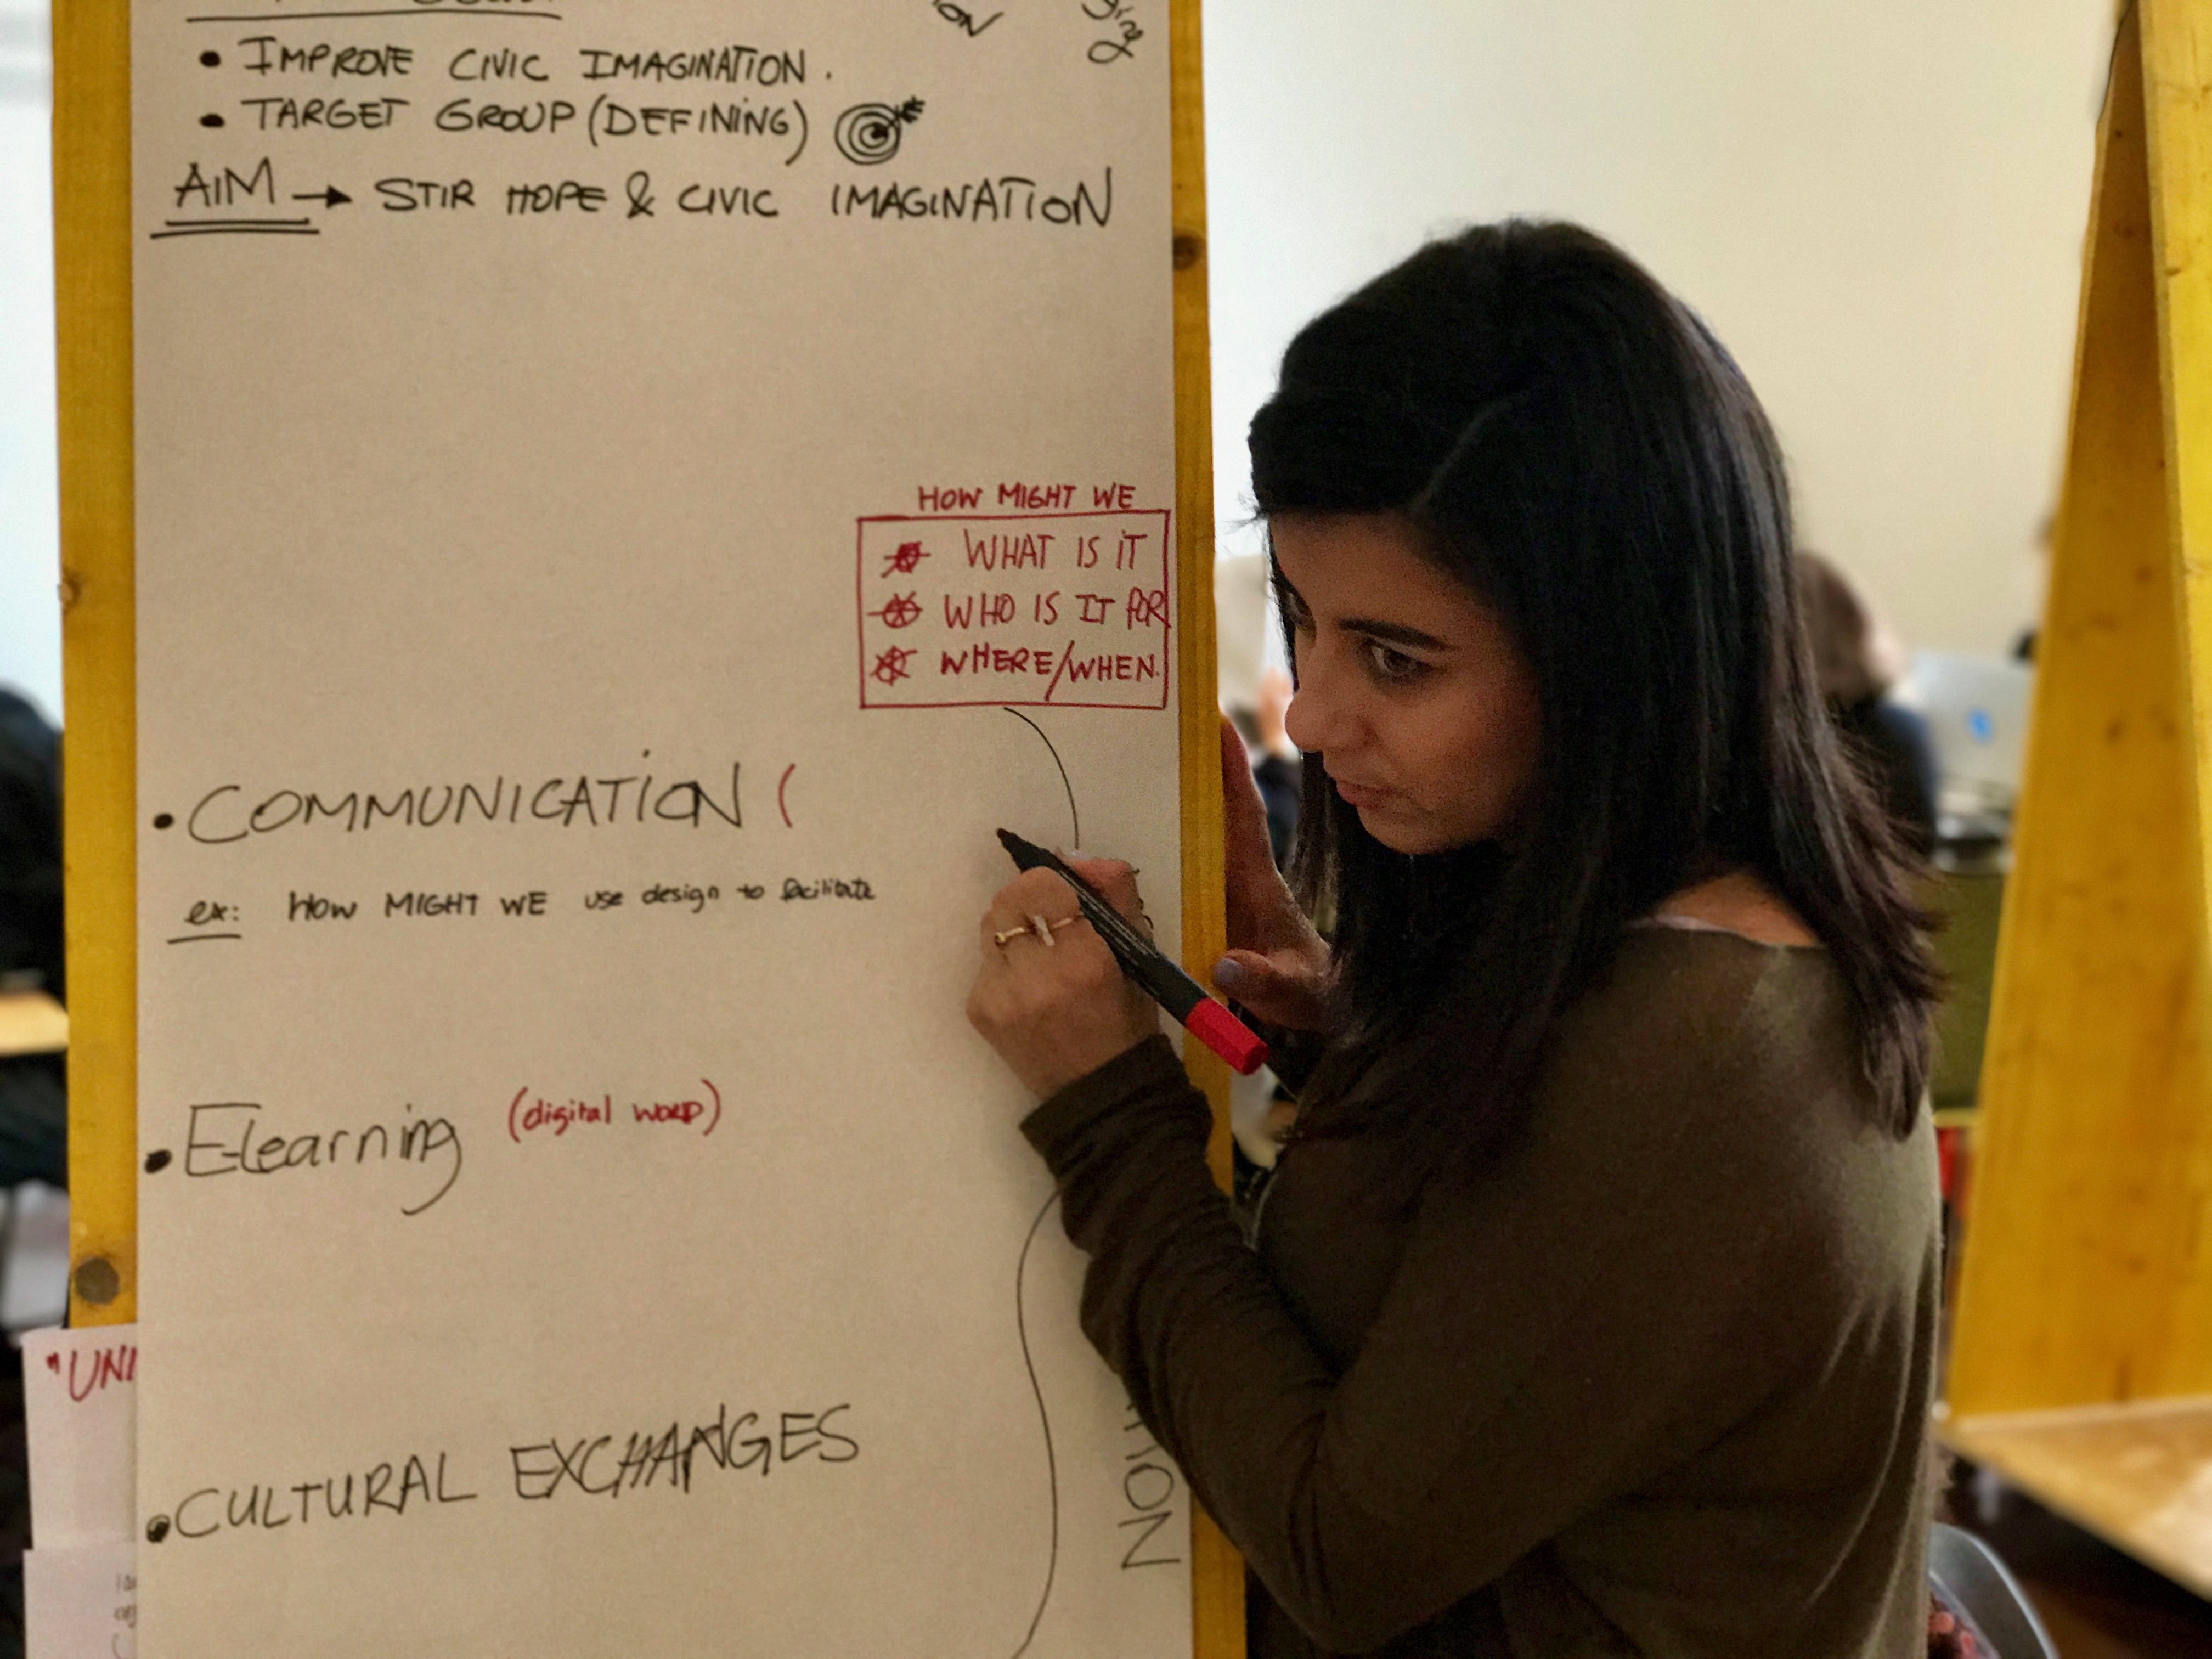 • IMPROVE CIVIC IMAGINATION.
• TARGET GROUP (DEFINING)
AIM → STIR HOPE & CIVIC IMAGINATION
HOW MIGHT WE
WHAT IS IT
WHO IS IT FOR
WHERE/WHEN.
• COMMUNICATION (
ex: HOW MIGHT WE use design to facilitate
• E-learning (digital WORD)
• CULTURAL EXCHANGES
"UNI
TION